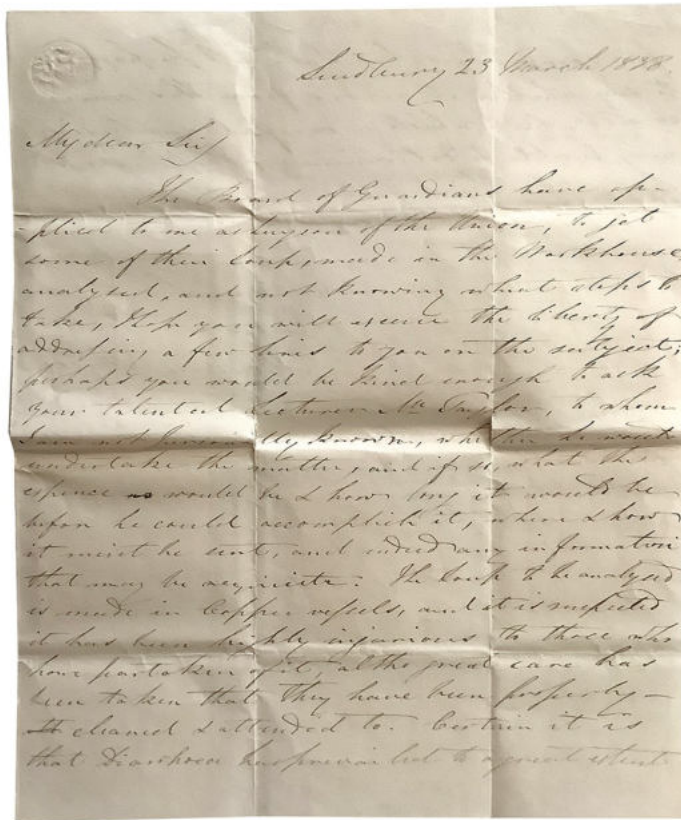 Sudbury 23 March 1838.
My dear Sir,
The Board of Guardians have ap-
-plied to me as Surgeon of the Union, to get
some of their Soup, made in the Workhouse,
analysed, and not knowing what steps to
take, I hope you will excuse the liberty of
addressing a few lines to you on the subject;
perhaps you would be kind enough to ask
your talented Lecturer Mr Taylor, to whom
I am not personally known, whether he would
undertake the matter, and if so, what the
expence would be & how long it would be
before he could accomplish it, where & how
it must be sent, and indeed any information
that may be requisite. The Soup to be analysed
is made in Copper vessels, and it is suspected
it has been highly injurious to those who
have partaken of it, altho great care has
been taken that they have been properly -
cleaned & attended to. Certain it is
that Diarrhoea has prevailed to a great extent